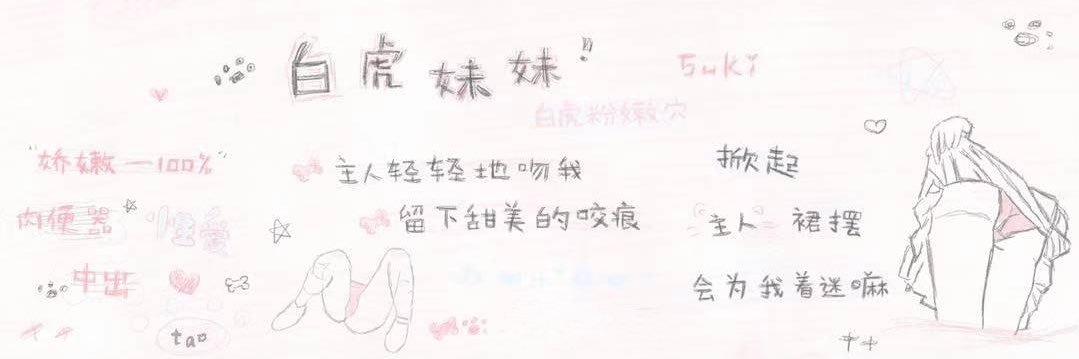 白虎妹妹!!
suki
白虎粉嫩穴
"娇嫩—100%"
主人轻轻地吻我
掀起
肉便器
性爱
留下甜美的咬痕
"主人" 裙摆
中出
会为我着迷嘛
tao